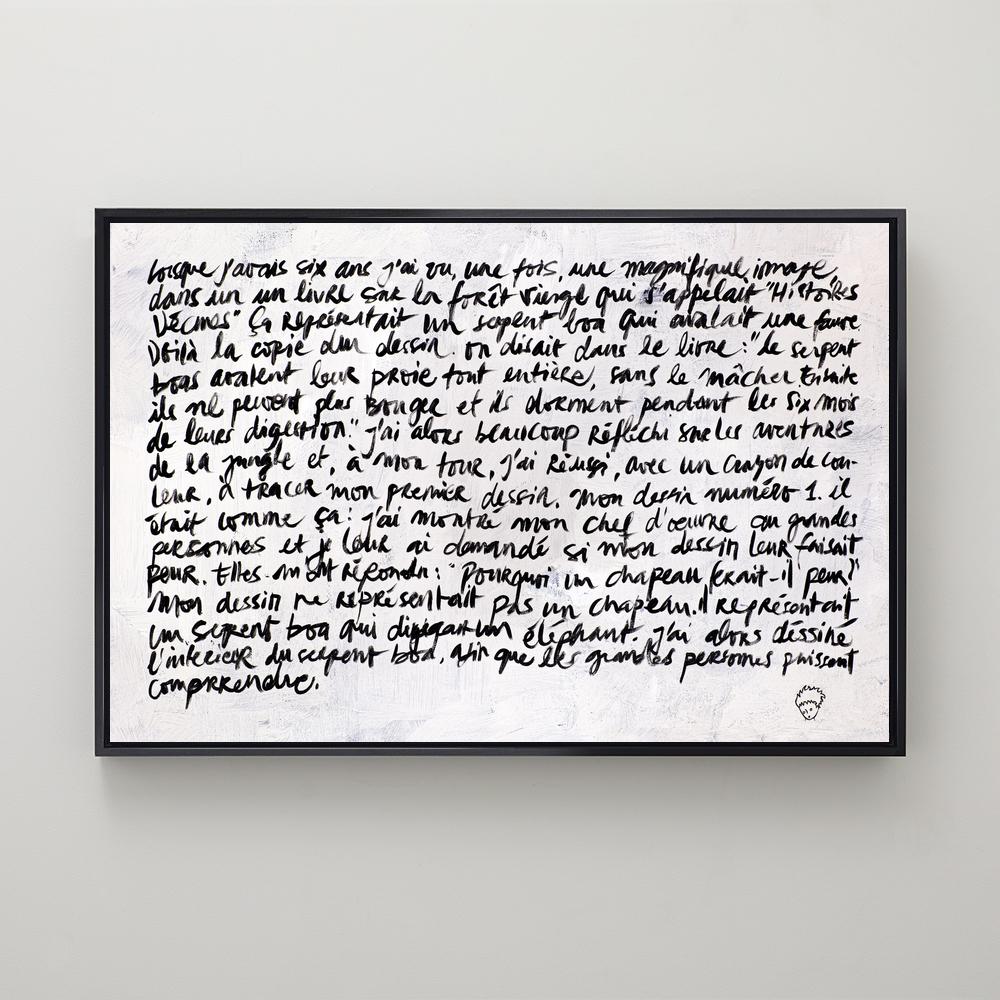 Lorsque j'avais six ans j'ai vu, une fois, une magnifique image
dans un un livre sur la forêt vierge qui s'appelait "Histoires
Vécues" Ça représentait un serpent boa qui avalait une fauve.
Voilà la copie d'un dessin. on disait dans le livre : "Le serpent
boas avalent leur proie tout entière, sans la mâcher. Ensuite
ils ne peuvent plus bouger et ils dorment pendant les six mois
de leurs digestion." j'ai alors beaucoup réfléchi sur les aventures
de la jungle et, à mon tour, j'ai réussi, avec un crayon de cou-
leur, à tracer mon premier dessin. Mon dessin numéro 1. il
était comme ça : j'ai montré mon chef d'oeuvre au grandes
personnes et je leur ai demandé si mon dessin leur faisait
peur. Elles m'ont répondu : "Pourquoi un chapeau ferait-il peur?"
Mon dessin ne représentait pas un chapeau. il représentait
un serpent boa qui digérait un éléphant. j'ai alors dessiné
l'intérieur du serpent boa, afin que les grandes personnes puissent
comprendre.